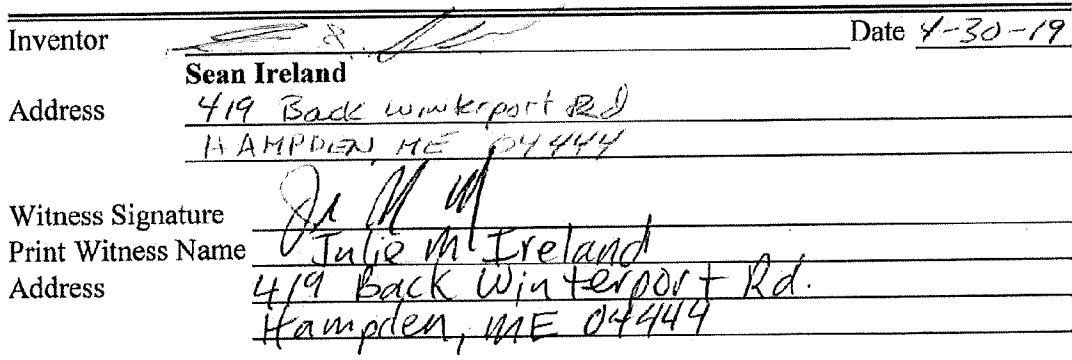 Inventor Date 4-30-19
Sean Ireland
Address 419 Back Winterport Rd
HAMPDEN ME 04444
Witness Signature
Print Witness Name Julie M Ireland
Address 419 Back Winterport Rd.
Hampden, ME 04444